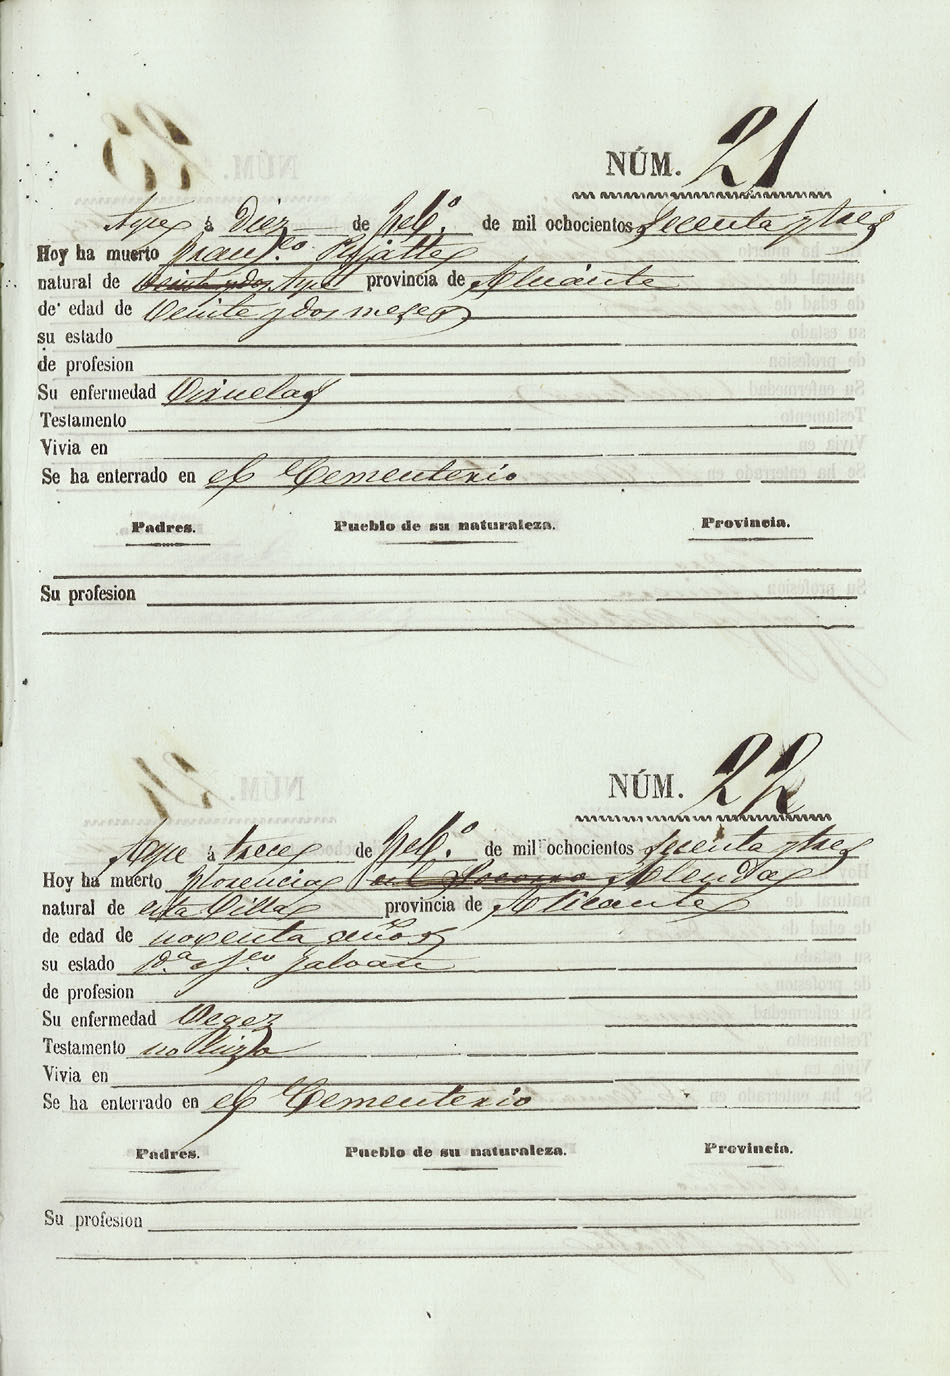 NÚM. 21
Aspe á Diez de Feb.º de mil ochocientos secenta y tres
Hoy ha muerto Fran.co
natural de Aspe provincia de Alicante
de edad de veinte y dos meses
su estado
de profesion
Su enfermedad Viruelas
Testamento
Vivia en
Se ha enterrado en el Cementerio
Padres. Pueblo de su naturaleza. Provincia.
Su profesion
NÚM. 22
Aspe á trece de Feb.º de mil ochocientos secenta y tres
Hoy ha muerto Florencia Alenda
natural de esta Villa provincia de Alicante
de edad de noventa años
su estado V.da de Fco Galvañ
de profesion
Su enfermedad Vegez
Testamento no hizo
Vivia en
Se ha enterrado en el Cementerio
Padres. Pueblo de su naturaleza. Provincia.
Su profesion